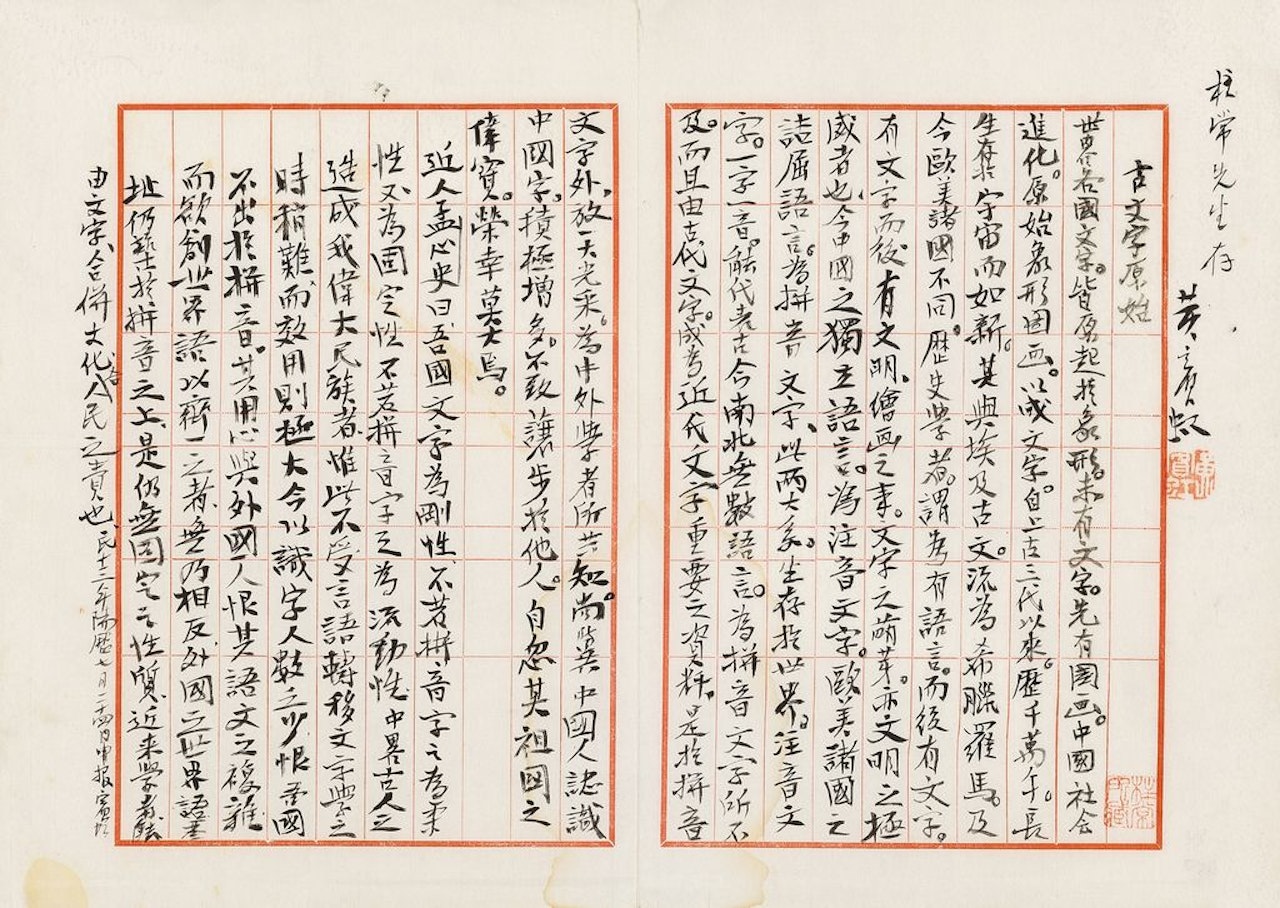 柱常先生存
黄賓虹
古文字原始
世界各國文字。皆原起於象形。未有文字。先有圖画。中國社会
進化。原始象形圖画。以成文字。自上古三代以来。歷千萬年。長
生存於宇宙而如新。其與埃及古文。流為希臘羅馬。及
今歐美諸國不同。歷史學者。謂為有語言。而後有文字。
有文字而後有文明。繪画之事。文字之萌芽。亦文明之極
盛者也。今中國之獨立語言。為注音文字。歐美諸國之
詰屈語言。為拼音文字、此兩大系。生存於世界。注音文
字。一字一音。能代表古今南北無數語言。為拼音文字所不
及。而且由古代文字。成為近代文字重要之資料。是於拼音
文字外、放一大光采。為中外學者所共知。尚冀中國人認識
中國字。積極增多。不致讓步於他人。自忽其祖國之
偉寶。榮幸莫大焉。
近人孟心史曰吾國文字為剛性、不若拼音字之為柔
性又為固定性不若拼音字之為流動性中畧古人之
造成我偉大民族者、惟此不受言語轉移文字學之
時稍難、而效用則極大今以識字人數之少恨吾國
不出於拼音。其用心與外國人恨其語文之複雜
而欲創世界語以齊一之者、無乃相反、外國之世界語
址仍託於拼音之上、是仍無固定之性質、近来學者
由文字合併文化合人民之責也、民十三年陽歷七月二十四日申報 賓虹